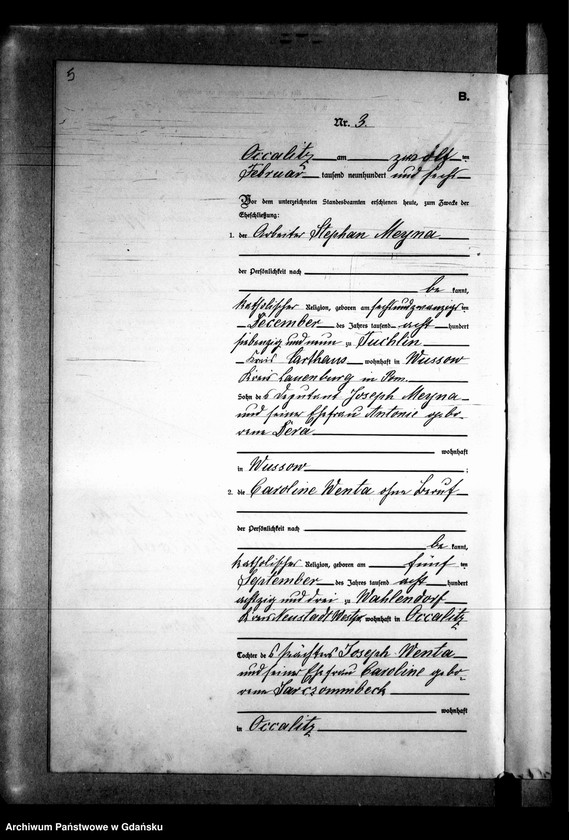 5
B.
Nr. 3.
Occalitz am zwölften
Februar tausend neunhundert und sechs
Vor dem unterzeichneten Standesbeamten erschienen heute, zum Zwecke der
Eheschließung:
1. der Arbeiter Stephan Meyna
der Persönlichkeit nach
be kannt,
katholischer Religion, geboren am sechsundzwanzigsten
December des Jahres tausend acht hundert
siebenzig und neun zu Tuchlin
Kreis Carthaus wohnhaft in Wussow
Kreis Lauenburg in Pom.
Sohn des Deputant Joseph Meyna
und seiner Ehefrau Antonie gebo-
rene
wohnhaft
in Wussow ;
2. die Caroline Wenta ohne Beruf
der Persönlichkeit nach
be kannt,
katholischer Religion, geboren am fünften
September des Jahres tausend acht hundert
achtzig und drei zu Wahlendorf
Kreis Neustadt Westpr. wohnhaft in Occalitz
Tochter des Pächters Joseph Wenta
und seiner Ehefrau Caroline gebo-
rene
wohnhaft
in Occalitz
Archiwum Państwowe w Gdańsku